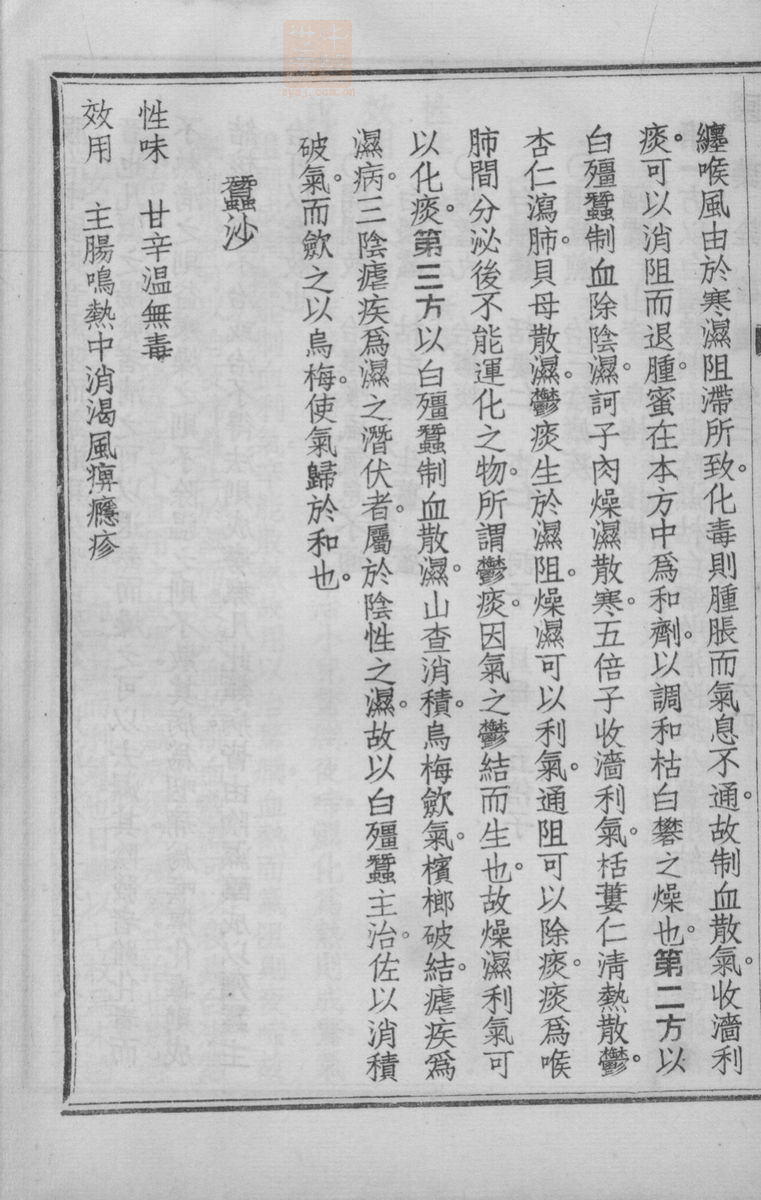 纏喉風由於寒濕阻滯所致。化毒則腫脹而氣息不通。故制血散氣。收濇利
痰。可以消阻而退腫。蜜在本方中爲和劑。以調和枯白礬之燥也。第二方以
白殭蠶制血除陰濕。訶子肉燥濕散寒。五倍子收濇利氣。栝蔞仁淸熱散鬱。
杏仁瀉肺。貝母散濕。鬱痰生於濕阻。燥濕可以利氣。通阻可以除痰。痰爲喉
肺間分泌後不能運化之物。所謂鬱痰。因氣之鬱結而生也。故燥濕利氣可
以化痰。第三方以白殭蠶制血散濕。山查消積。烏梅歛氣。檳榔破結。瘧疾爲
濕病。三陰瘧疾爲濕之潛伏者。屬於陰性之濕。故以白殭蠶主治。佐以消積
破氣。而歛之以烏梅。使氣歸於和也。
蠶沙
性味　甘辛溫無毒
效用　主腸鳴熱中消渴風痹癮疹